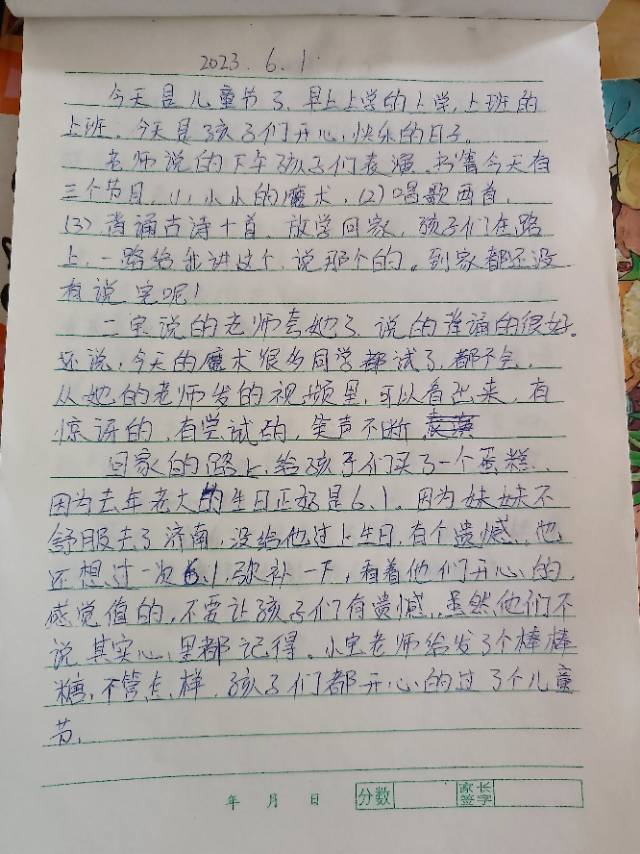 2023.6.1
今天是儿童节了,早上上学的上学,上班的
上班。今天是孩子们开心,快乐的日子。
老师说的下午孩子们表演,书箐今天有
三个节目,(1)小小的魔术,(2)唱歌两首,
(3)背诵古诗十首。放学回家,孩子们在路
上,一路给我讲这个,说那个的。到家都还没
有说完呢!
二宝说的老师夸她了,说的背诵的很好。
还说,今天的魔术很多同学都试了,都不会,
从她的老师发的视频里,可以看出来,有
惊讶的,有尝试的,笑声不断
回家的路上,给孩子们买了一个蛋糕,
因为去年老大的生日正好是6.1。因为妹妹不
舒服去了济南,没给他过上生日,有个遗憾,他
还想过一次6.1,弥补一下,看着他们开心的
感觉值的,不要让孩子们有遗憾,虽然他们不
说其实心里都记得。小宝老师给发了个棒棒
糖,不管怎样,孩子们都开心的过了个儿童
节。
年 月 日 分数 家长签字